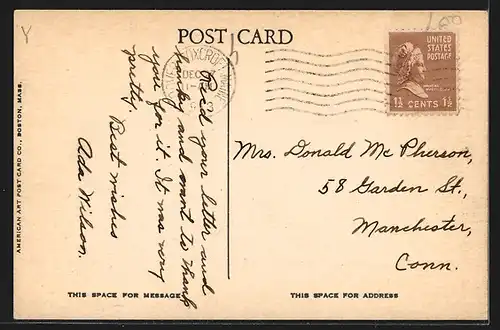 Y
POST CARD
DEC
UNITED
STATES
POSTAGE
1½ CENTS 1½
AMERICAN ART POST CARD CO., BOSTON, MASS.
Rec'd your letter and
hanky and want to thank
you for it. It was very
pretty.
Best wishes
Ada Wilson.
Mrs. Donald Mc Pherson,
58 Garden St.,
Manchester,
Conn.
THIS SPACE FOR MESSAGE
THIS SPACE FOR ADDRESS